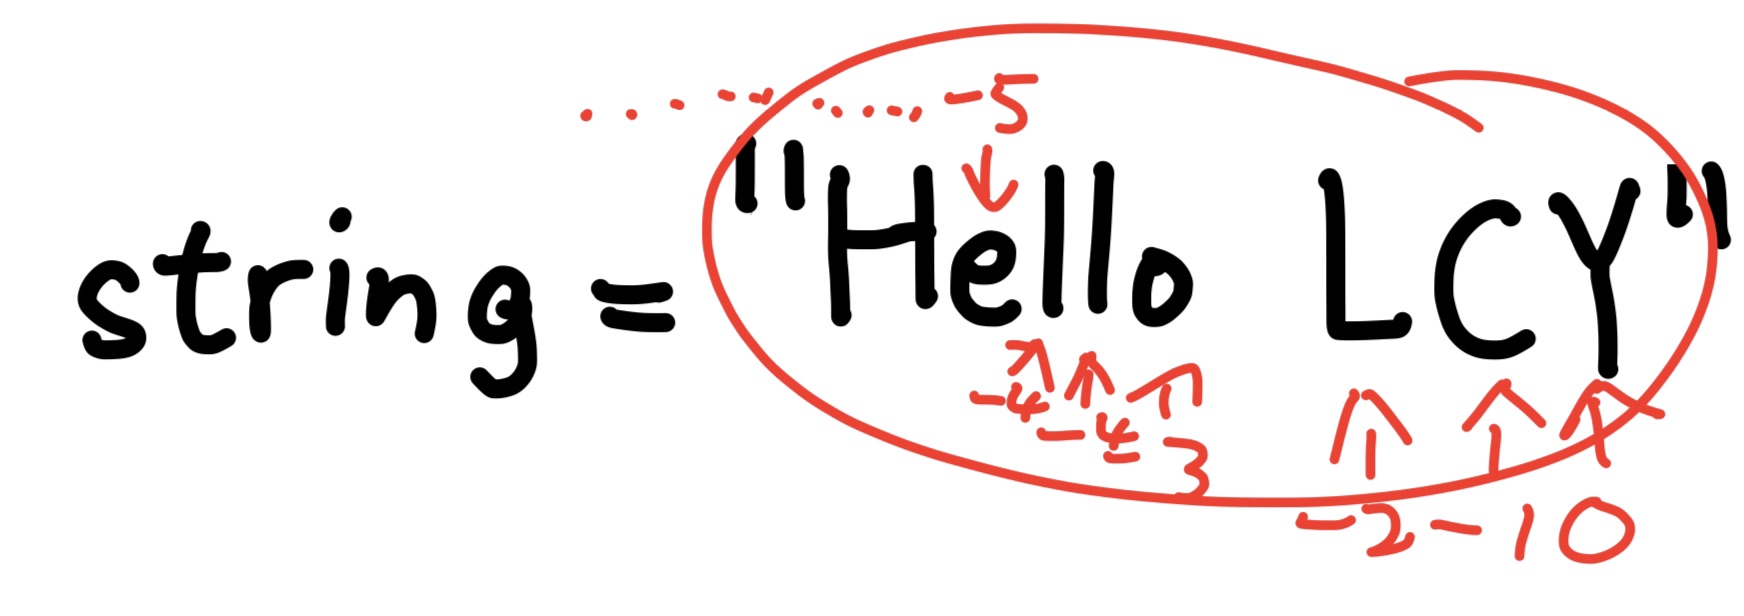 -5
string = "Hello LCY"
-4 -4 3
-2 -1 0